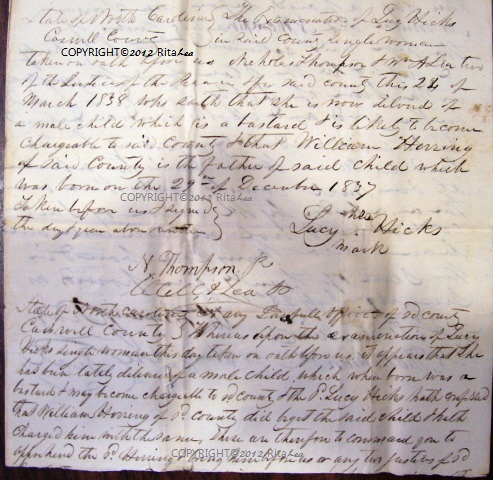 State of North Carolina } The Examination of Lucy Hicks
Caswell County } in said County single woman
COPYRIGHT©2012 RitaLea
taken on oath before us Nicholas Thompson & Wm A Lea two
of the Justices of the Peace of sd said county this 24 of
March 1838 who saith that she is now dilivd of
a male child which is a bastard & is likely to become
chargeable to said County & that William Herring
of said County is the father of said child which
was born on the 29th of December 1837
COPYRIGHT©2012 RitaLea
Taken before us & signed }
the day & year above written }
her
Lucy Hicks
mark
N Thompson JP
Will A Lea JP
COPYRIGHT©2012 RitaLea
State of North Carolina } To any Lawfull officer of sd county
Caswell County } Whereas upon the examination of Lucy
Hicks single woman this day taken on oath before us, it appears that she
has bin lately dilivered of a male child which when born was a
bastard & may become chargeable to sd county & the sd Lucy Hicks hath confessed
that William Herring of sd county did beget the said child & hath
Charged him with the same, These are therefore to command you to
apprehend the sd Herring & bring him before us or any two Justices of sd
COPYRIGHT©2012 RitaLea